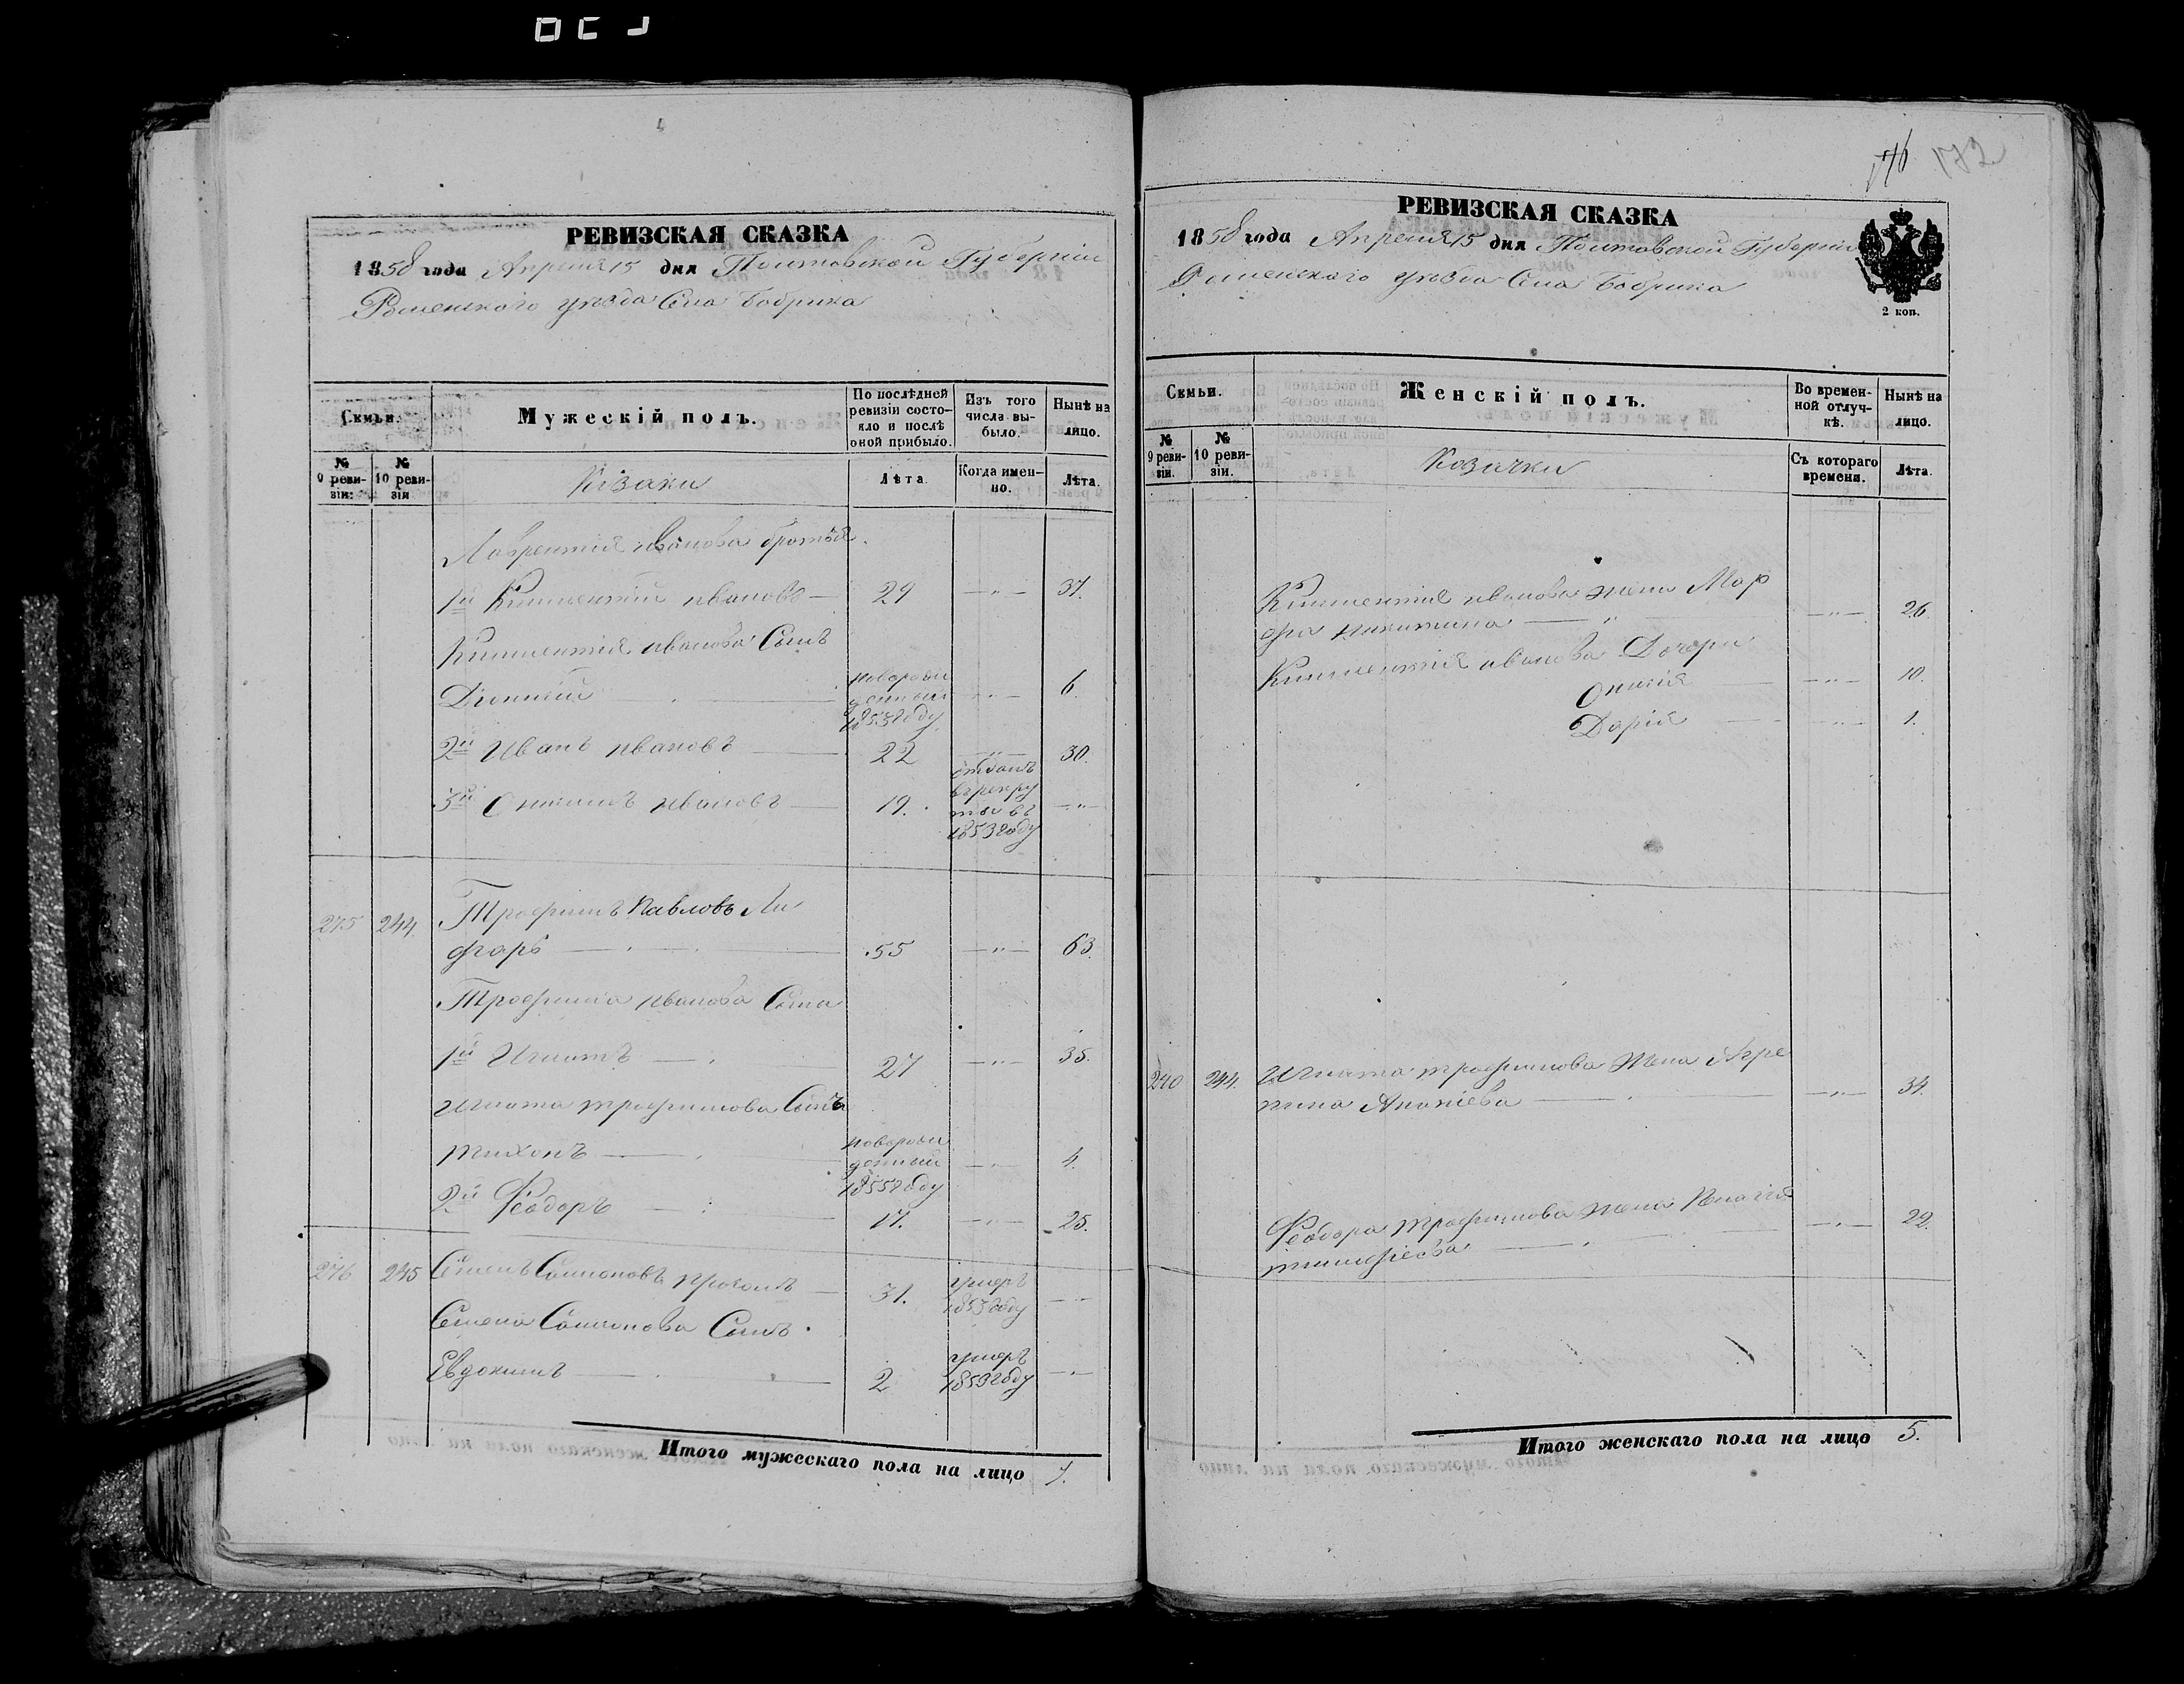 РЕВИЗСКАЯ СКАЗКА
1858 года Апреля 15 дня Полтавской Губернии
Роменского уезда Села Бобрика
Семьи.
Мужескій полъ.
По послѣдней ревизіи состояло и послѣ оной прибыло.
Изъ того числа выбыло.
Нынѣ на лицо.
№ 9 ревизіи.
№ 10 ревизіи
Козаки
Лѣта.
Когда именно.
Лѣта.
Лаврентія Иванова братья
1й Климентій Ивановъ 29 37.
Климентія Иванова Сынъ
новорожденный 1853 году
6.
2й Иванъ Ивановъ 22 30.
3й Ивановъ 19. отданъ в рекруты въ 1853 году
275 244. Трофимъ Павловъ Ли
фарь 55 63.
Трофима Иванова Сына
1й Игнатъ 27 35.
Игната Трофимова Сынъ
Тихонъ новорожденный 1855 году 4.
2й Феодоръ 17. 25.
276 245 Семенъ 31. умеръ 1853 году
Семена Сынъ
Евдокимъ 2 умеръ 1853 году
Итого мужескаго пола на лицо 7.
172
РЕВИЗСКАЯ СКАЗКА
1858 года Апреля 15 дня Полтавской Губерніи
Роменского уезда Села Бобрика
2 коп.
Семьи.
Женскій полъ.
Во временной отлучкѣ.
Нынѣ на лицо.
№ 9 ревизіи.
№ 10 ревизіи.
Козачки
Съ котораго времени.
Лѣта.
Климентія Иванова жена Мар
фа Никитина 26
Климентія Иванова Дочери
10.
Дарія 1.
240 244. Игната Трофимова Жена Агре
пина Ананіева 34.
Феодора Трофимова жена Пелагія
Тимофіева 22.
Итого женскаго пола на лицо 5.